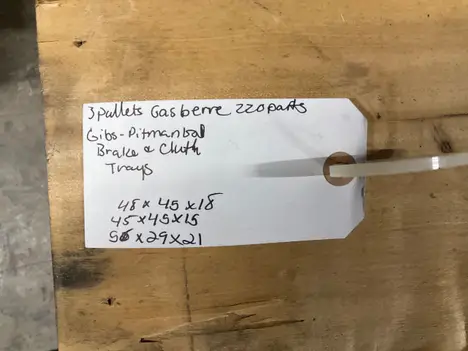 3 pallets Gasbarre 220 parts
Gibs - Pitman ball
Brake & Clutch
Trays
48 x 45 x 18
45 x 45 x 15
x 29 x 21